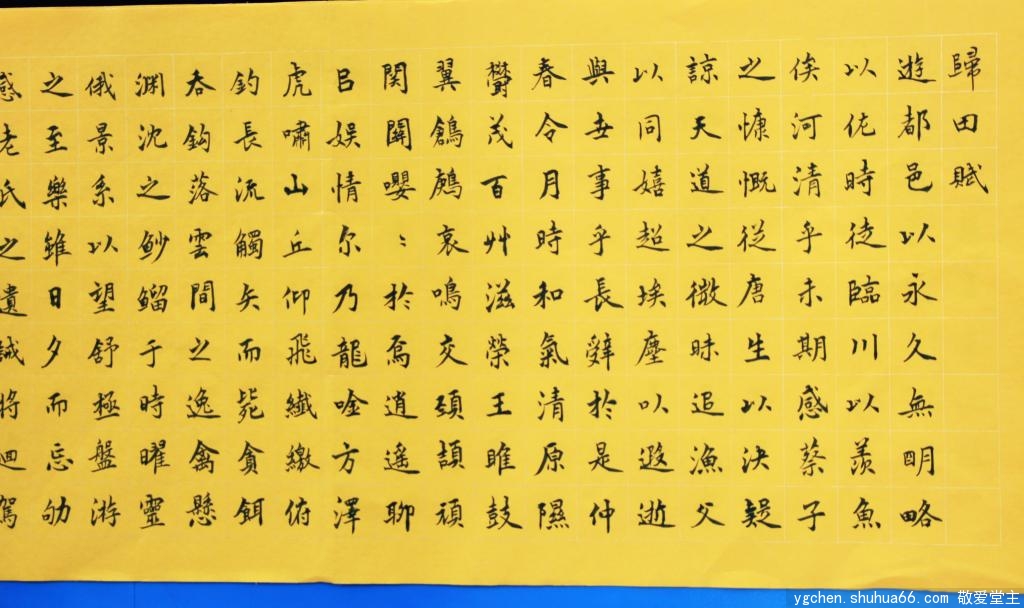 歸田賦
遊都邑以永久無明略
以佐時徒臨川以羨魚
俟河清乎未期感蔡子
之慷慨從唐生以決疑
諒天道之微昧追漁父
以同嬉超埃塵以遐逝
與世事乎長辭於是仲
春令月時和氣清原隰
欝茂百艸滋榮王雎鼓
翼鶬鶊哀鳴交頸頡頏
関關嚶〻於焉逍遙聊
㠯娛情尔乃龍唫方澤
虎嘯山丘仰飛纖繳俯
釣長流觸矢而毙貪餌
吞鈎落雲間之逸禽懸
渊沈之魦鰡于時曜靈
俄景系以望舒極盤游
之至樂雖日夕而忘劬
感老氏之遺誡將迴駕
ygchen.shuhua66.com 敬爱堂主